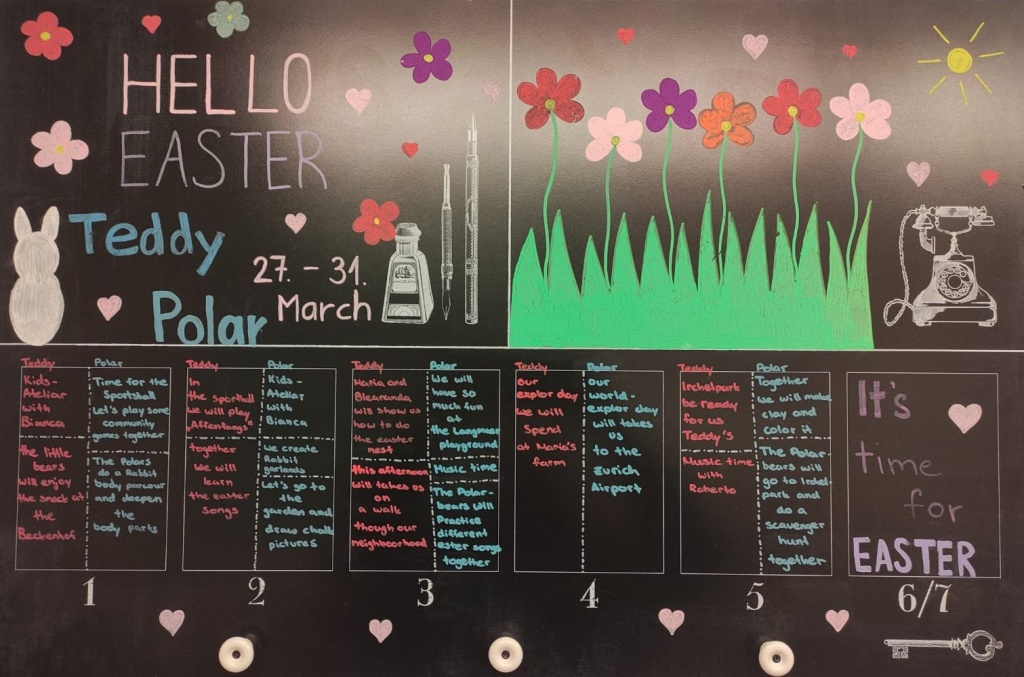 HELLO
EASTER
Teddy
Polar
27. - 31.
March
Teddy
Kids-
Ateliar
with
Bianca
the little
bears
will enjoy
the snack at
the
Beckenhof
Polar
Time for the
Sportshall
Let's play some
community
games together
The Polars
do a Rabbit
body parcour
and deepen
the
body parts
1
Teddy
In
the sporthall
we will play
„Affenfangs"
together
we will
learn
the easter
songs
Polar
Kids-
Ateliar
with
Bianca
we create
Rabbit
garlands
Let's go to
the
garden and
draw chalk
pictures
2
Teddy
Maria and
Blearanda
will show us
how to do
the easter
nest
this afternoon
will takes us
on
a walk
though our
neighboorhood
Polar
We will
have so
much fun
at
the Langmauer
playground
Music time
The Polar-
bears will
Practice
different
ester songs
together
3
Teddy
our
explor day
we will
Spend
at Maria's
farm
Polar
our
world-
explor day
will takes
us
to the
zurich
Airport
4
Teddy
Irchelpark
be ready
for us
Teddy's
Music time
with
Roberto
Polar
Together
we will make
clay and
color it
The Polar
bears will
go to Irchel-
park and
do a
scavenger
hunt
together
5
It's
time
for
EASTER
6/7